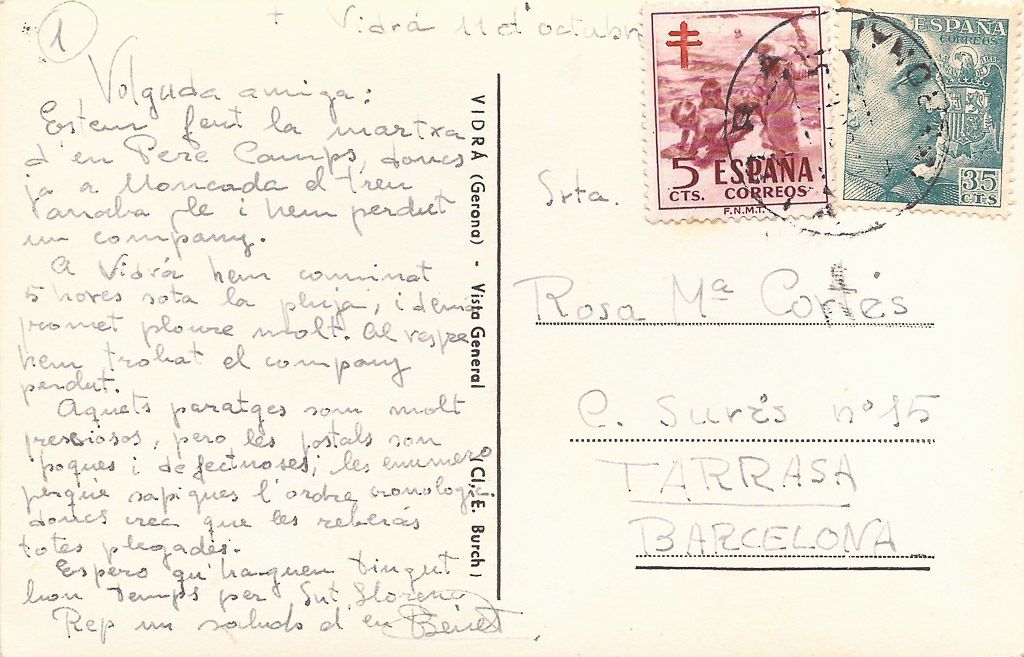 1
+ Vidrá 11 d'octubre
Volguda amiga:
Estem fent la martxa
d'en Pere Camps, doncs
ja a Moncada el tren
anaba ple i hem perdut
un company.
A Vidrá hem caminat
5 hores sota la pluja, i demá
promet ploure molt. Al vespre
hem trobat el company
perdut.
Aquets paratges som molt
presiosos, pero les postals son
poques i defectuoses; les enumero
perque sapigues l'ordre cronologic
doncs crec que les reberás
totes plegades.
Espero qu'haguen tingut
bon temps per Snt. Llorenç
Rep un saludo d'en Benet
VIDRÁ (Gerona) - Vista General (Cl. E. Burch)
5 CTS. ESPAÑA
CORREOS
F.N.M.T.
ESPAÑA
CORREOS
35
CTS
Srta.
Rosa Mª Cortés
C. Surís nº 15
TARRASA
BARCELONA